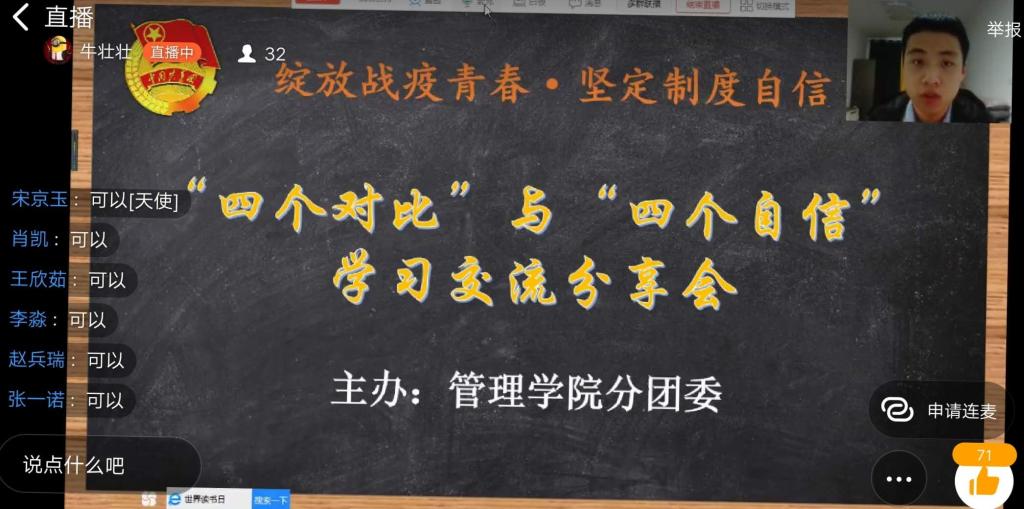 直播
举报
牛壮壮
直播中
32
多群联播
结束直播
切换模式
消息
绽放战疫青春·坚定制度自信
“四个对比”与“四个自信”
学习交流分享会
主办：管理学院分团委
宋京玉：可以[天使]
肖凯：可以
王欣茹：可以
李淼：可以
赵兵瑞：可以
张一诺：可以
说点什么吧
申请连麦
71
世界读书日
搜索一下